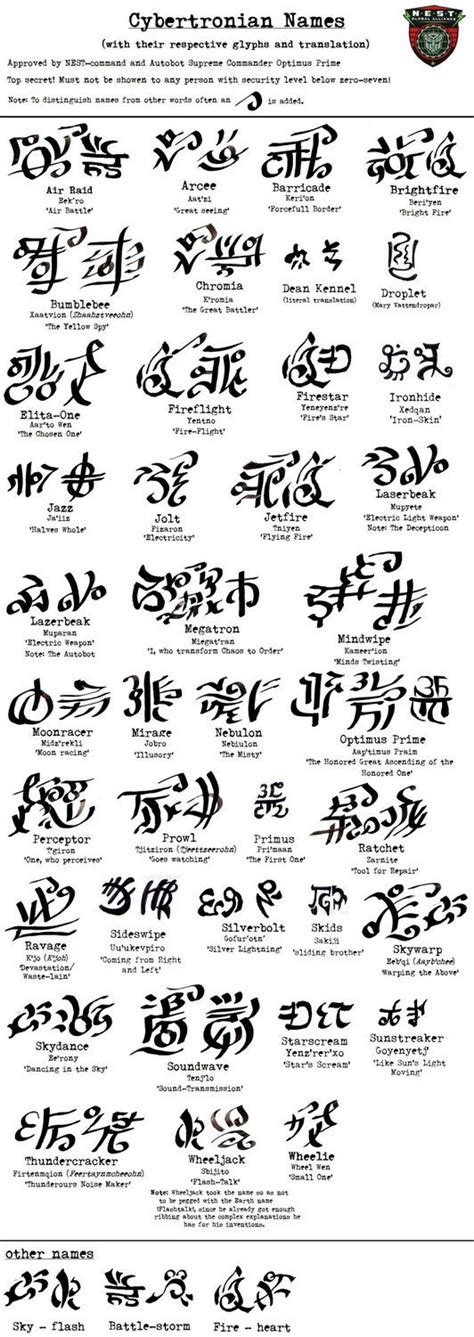 Cybertronian Names
N·E·S·T
GLOBAL ALLIANCE
(with their respective glyphs and translation)
Approved by NEST-command and Autobot Supreme Commander Optimus Prime
Top secret! Must not be showen to any person with security level below zero-seven!
Note: To distinguish names from other words often an is added.
Air Raid
Eek'ro
'Air Battle'
Arcee
Aat'zi
'Great seeing'
Barricade
Keri'on
'Forcefull Border'
Brightfire
Beri'yen
'Bright Fire'
Bumblebee
Xaatvion (Shaahztveeohn)
'The Yellow Spy'
Chromia
K'romia
'The Great Battler'
Dean Kennel
(literal translation)
Droplet
(Mary Vattendropar)
Elita-One
Aar'to Wen
'The Chosen One'
Fireflight
Yentno
'Fire-Flight'
Firestar
Yeneyenz're
'Fire's Star'
Ironhide
Xedqan
'Iron-Skin'
Jazz
Ja'iiz
'Halves Whole'
Jolt
Fizaron
'Electricity'
Jetfire
Tniyen
'Flying Fire'
Laserbeak
Mupyete
'Electric Light Weapon'
Note: The Decepticon
Lazerbeak
Muparan
'Electric Weapon'
Note: The Autobot
Megatron
Miegat'ran
'I, who transform Chaos to Order'
Mindwipe
Kameer'ion
'Minds Twisting'
Moonracer
Midz'rekli
'Moon racing'
Mirage
Jobro
'Illusory'
Nebulon
Nebiulon
'The Misty'
Optimus Prime
Aap'timus Praim
'The Honored Great Ascending of the
Honored One'
Perceptor
T'giron
'One, who perceives'
Prowl
Tjitziron (Tjeettzeerohn)
'Goes watching'
Primus
Pri'maan
'The First One'
Ratchet
Zarnite
'Tool for Repair'
Ravage
K'jo (K'joh)
'Devastation/
Waste-lain'
Sideswipe
Uu'ukevpiro
'Coming from Right
and Left'
Silverbolt
Gofur'otn'
'Silver Lightning'
Skids
Sakiji
'sliding brother'
Skywarp
Eeb'qi (Aayb'chee)
'Warping the Above'
Skydance
Ee'rony
'Dancing in the Sky'
Soundwave
Tenj'lo
'Sound-Transmission'
Starscream
Yenz'rer'xo
'Star's Scream'
Sunstreaker
Goyenyetj'
'Like Sun's Light
Moving'
Thundercracker
Firtenmqion (Feertaynmcheeohn)
'Thunderours Noise Maker'
Wheeljack
Sbijito
'Flash-Talk'
Note: Wheeljack took the name so as not
to be pegged with the Earth name
'Flashtalk', since he already got enough
ribbing about the complex explanations he
has for his inventions.
Wheelie
Wheel Wen
'Small One'
other names
Sky - flash
Battle-storm
Fire - heart